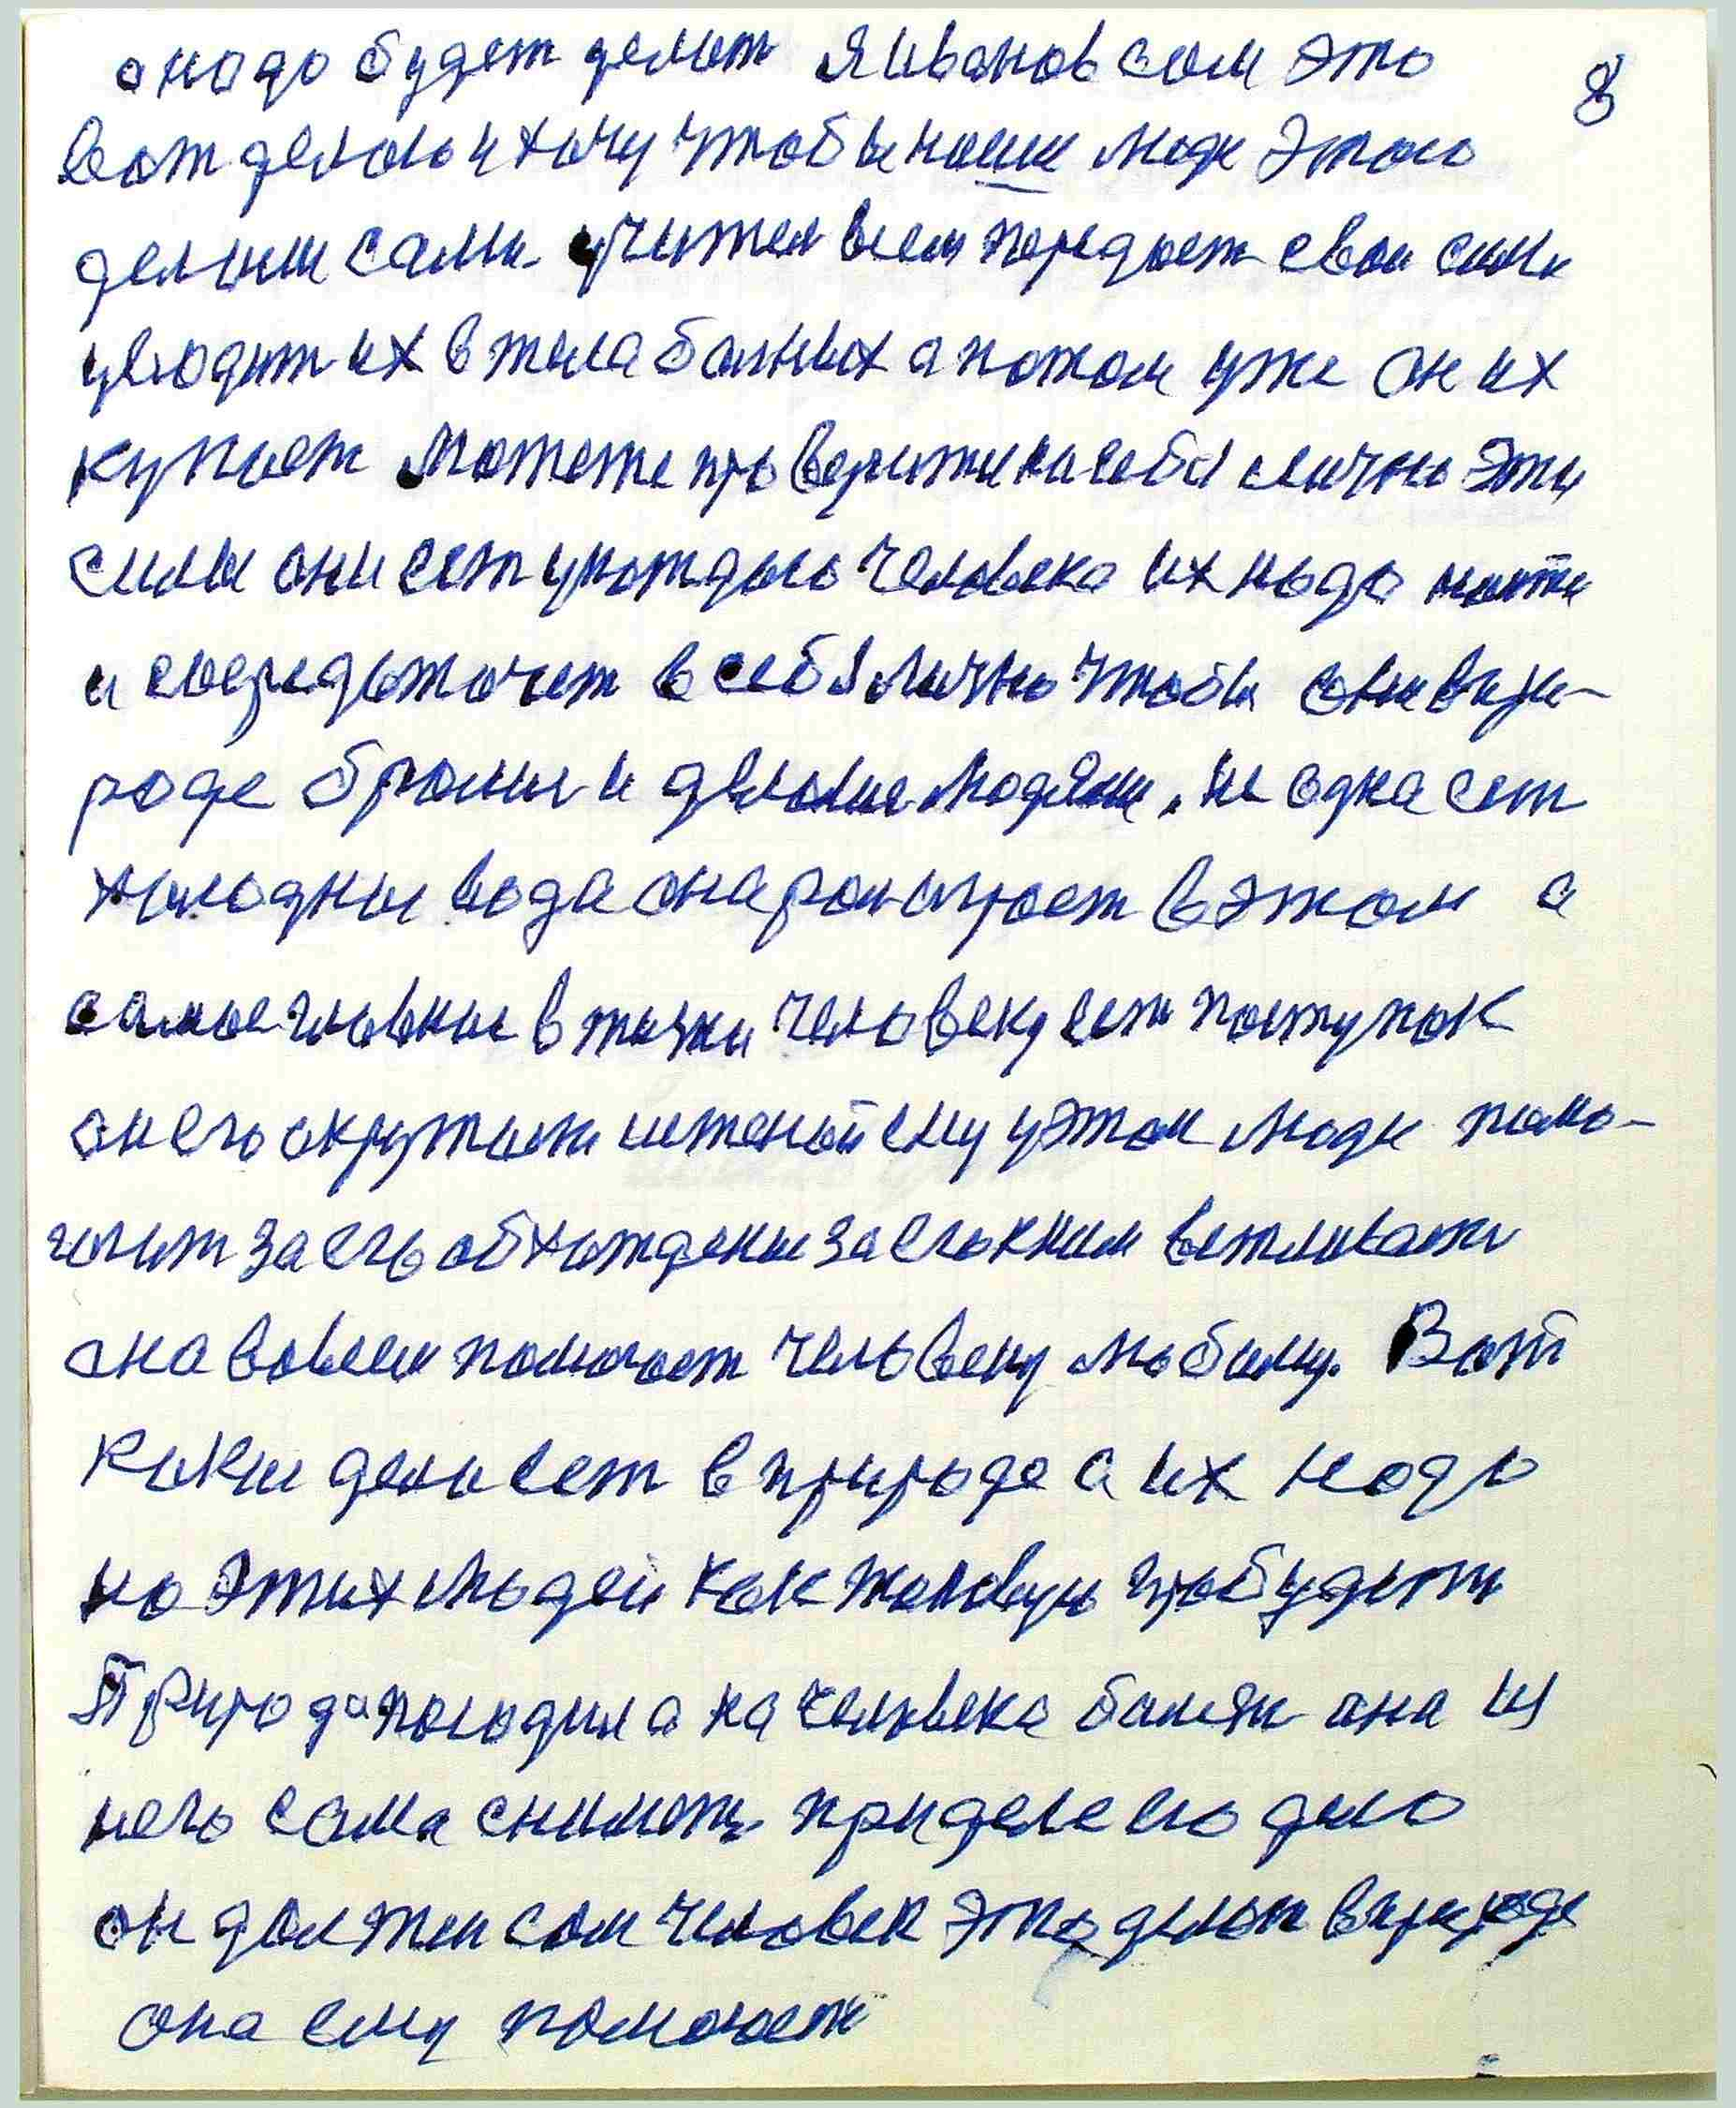 а надо будет делат Я Иванов сам это
8
вот делаю и хочу чтобы наши люди этого
делали сами. учител всем передает свои силы
уводит их в тила болных а потом уже он их
купает Можете проверити на себя лично эти
силы они ест у каждого человека их надо найти
и сосредоточет в себя лично чтобы они в при-
роде брални и делалис людями. не одна ест
холодные вода она рол играет в этом а
самое главные в жизни человеку ест поступок
он его окружает ему у этом люди помо-
гают за его обхождение за его к ним вежливост
она во всем помогает человеку любиму. Вот
какие дела ест в природе а их надо
на этих людей как таковую пробудит
Природа посодила на человека болезн она из
него сама снимет при деле его дело
он должен сам человек это делат в природе
она ему поможет